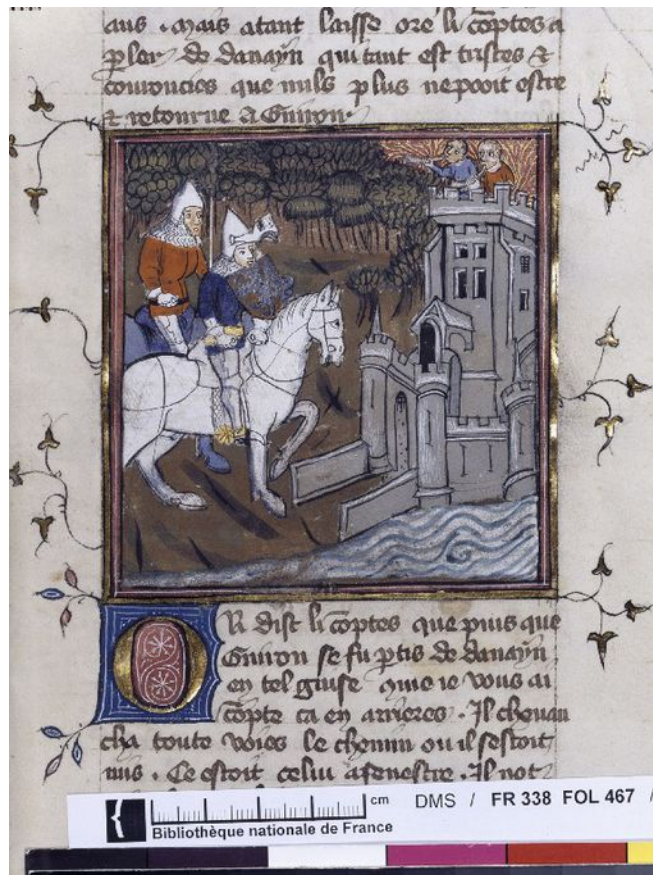 aus . Mais atant laisse ore li cõptes a
ꝑler de danayn qui tant est tristes &
couroucies que nuls plus ne pooit estre
& retourne a Guiron.
OR dist li cõptes que puis que
Guiron se fu ꝑtis de danayn
en tel guise que ie vous ai
cõpte ca en arrieres . Il cheuau
cha toute voies le chemin ou il sestoit
mis . Ce estoit celui Il not
cm
DMS / FR 338 FOL 467 /
Bibliothèque nationale de France